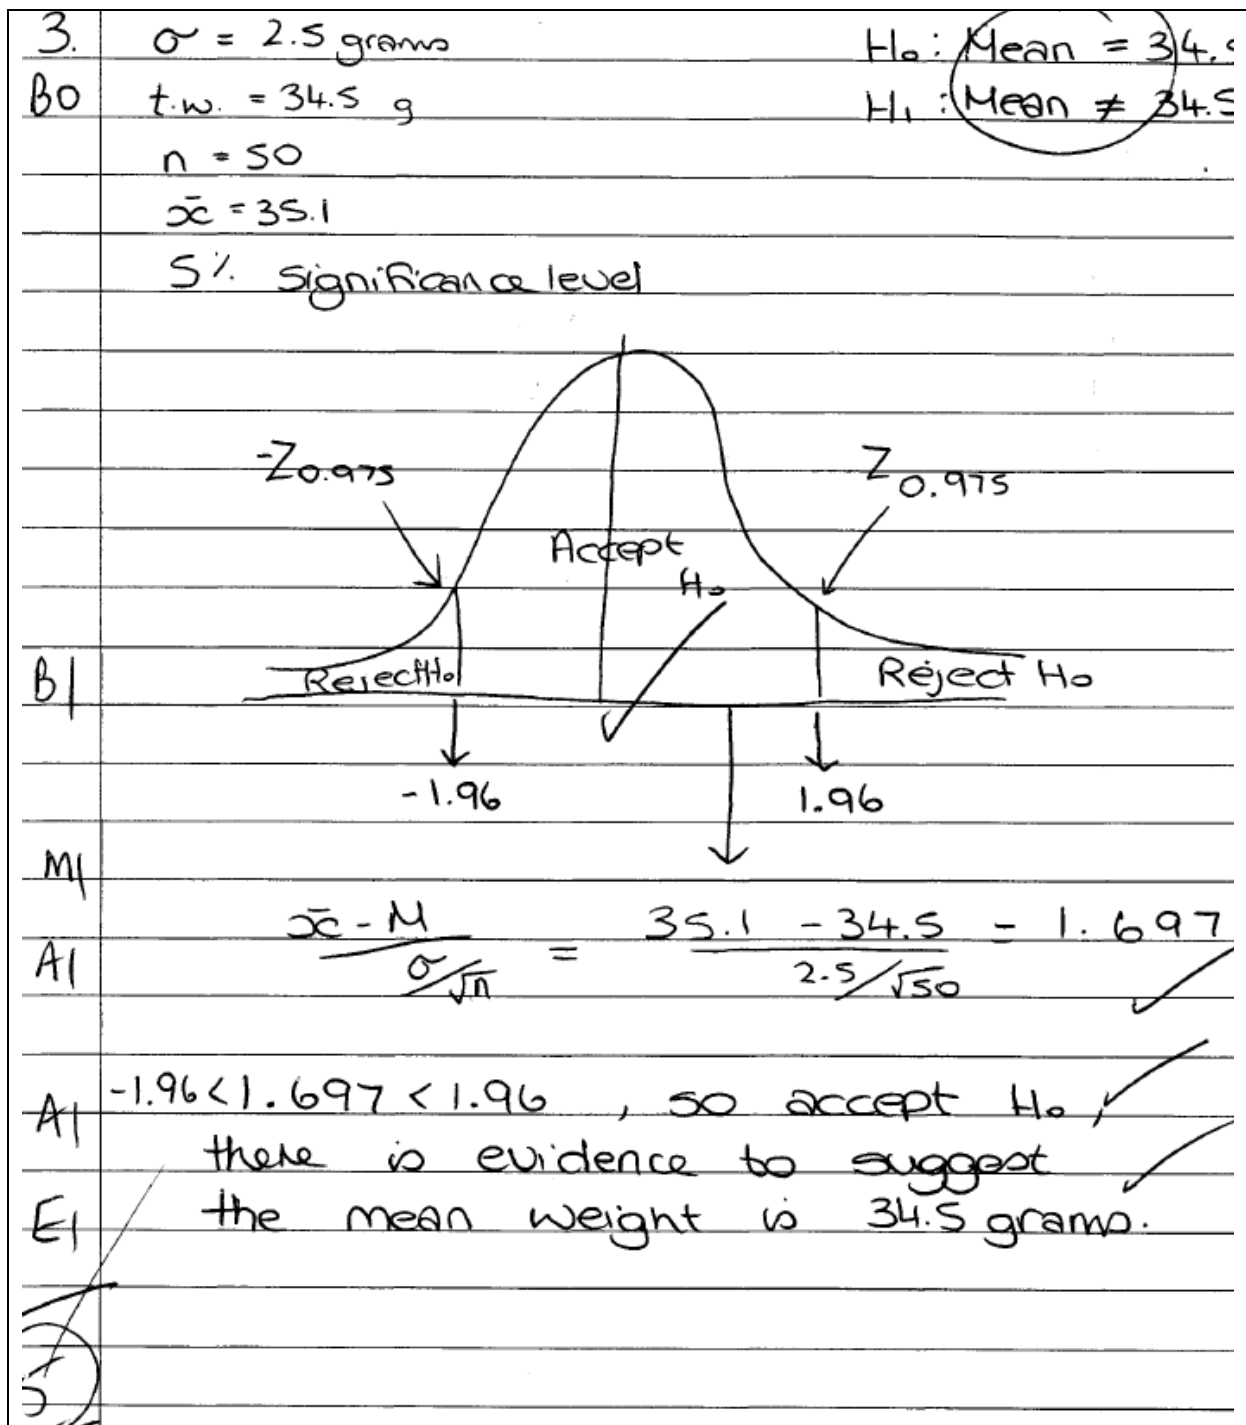 3. σ = 2.5 grams H₀ : Mean = 34.5
B0 t.w. = 34.5 g H₁ : Mean ≠ 34.5
n = 50
x̄ = 35.1
5% significance level
-Z0.975 Z0.975
Accept H₀
B1 Reject H₀ Reject H₀
-1.96 1.96
M1
A1 (x̄ - M)/(σ/√n) = (35.1 - 34.5)/(2.5/√50) = 1.697
A1 -1.96 < 1.697 < 1.96 , so accept H₀,
there is evidence to suggest
E1 the mean weight is 34.5 grams.